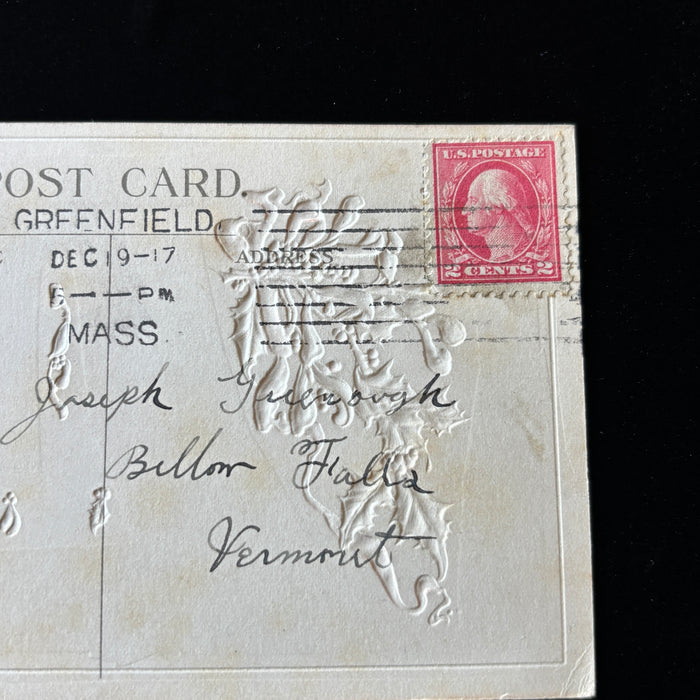 POST CARD.
GREENFIELD,
DEC 19-17
ADDRESS
5 — — PM
MASS.
U.S. POSTAGE
2 CENTS 2
Joseph Greenough
Bellow Falls
Vermont